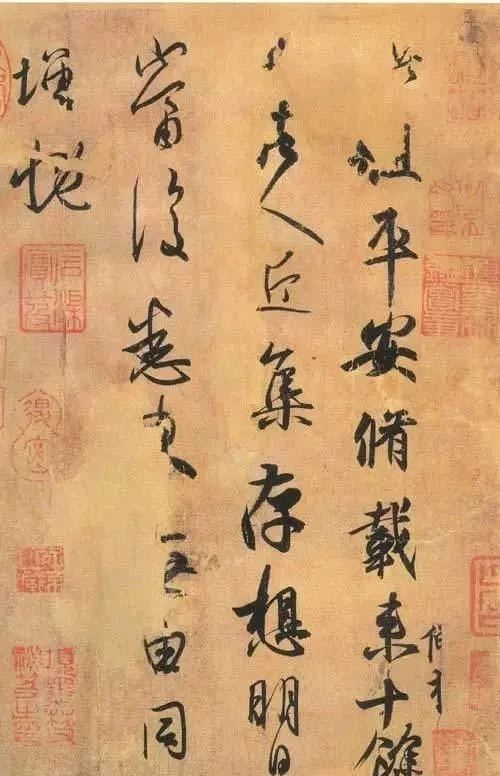 此粗平安脩載來十餘
諸人近集存想明日
當復悉來無由同
增慨